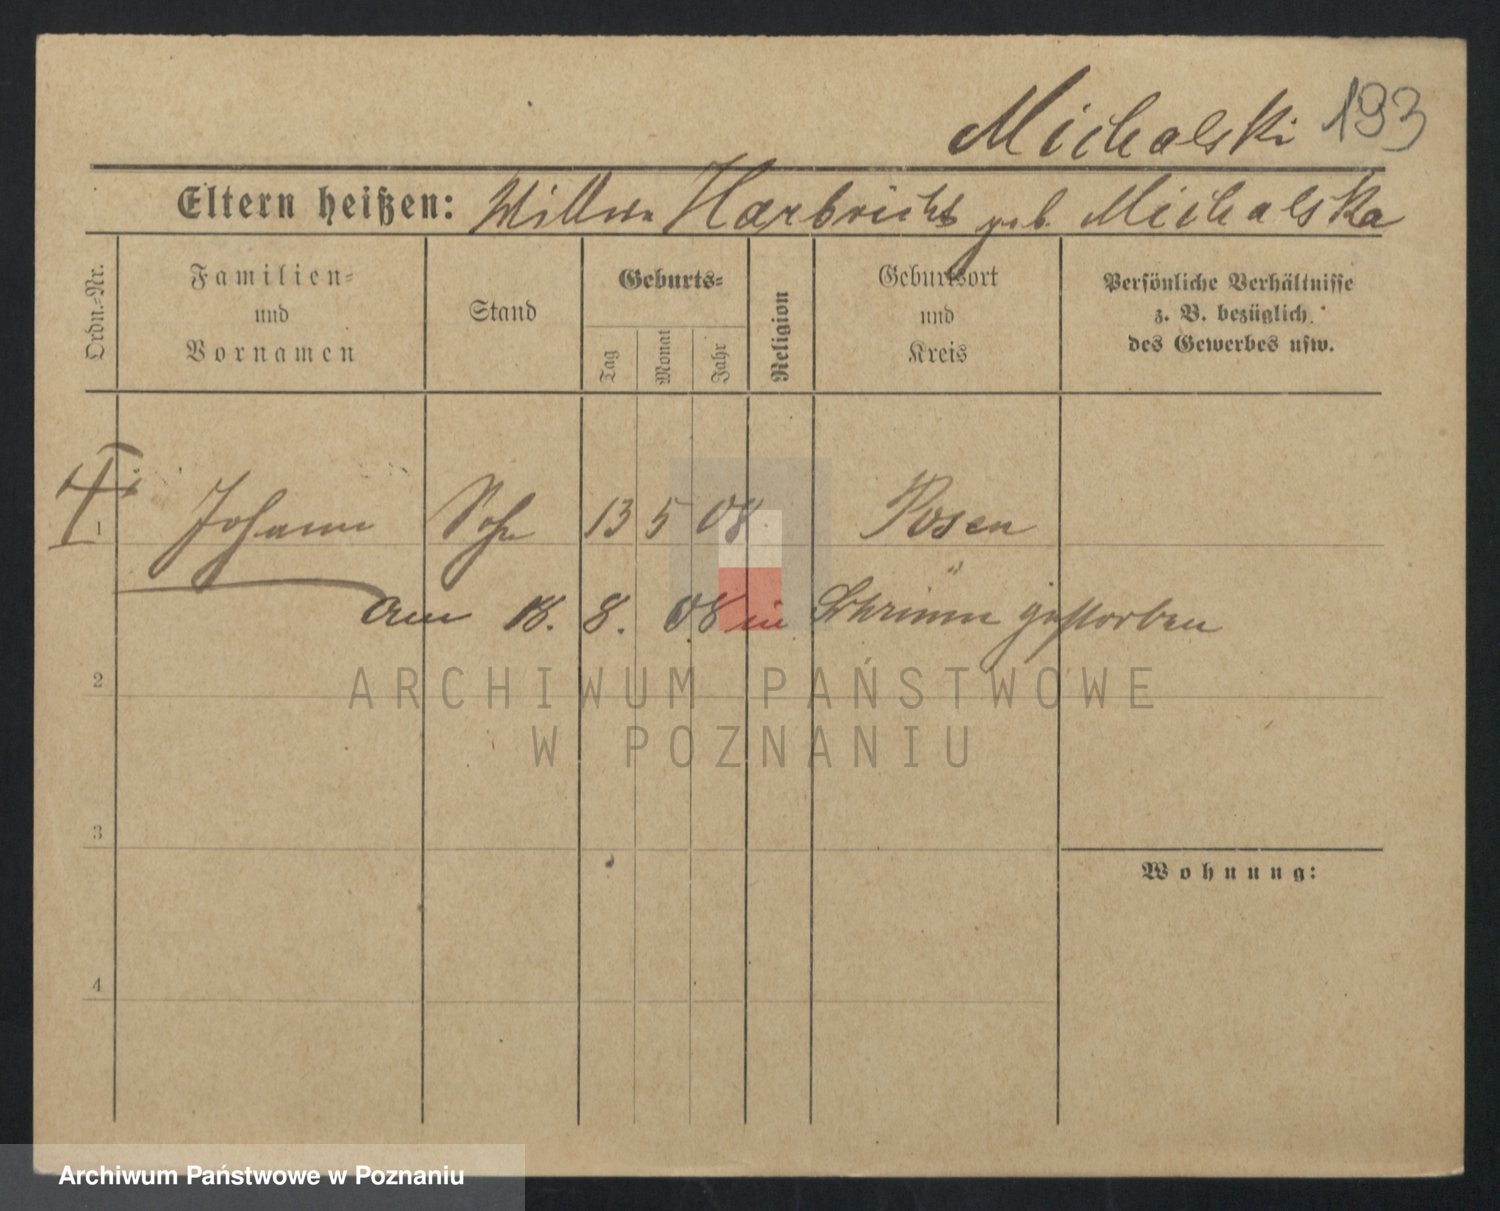 Michalski 193
Eltern heißen: Witwe Harbricht geb. Michalska
Ordn.-Nr.
Familien-
und
Vornamen
Stand
Geburts-
Tag
Monat
Jahr
Religion
Geburtsort
und
Kreis
Persönliche Verhältnisse
z. B. bezüglich
des Gewerbes usw.
1 Johann Sohn 13 5 08 Posen
am 18. 8. 08 in Schrimm gestorben
2
3
4
Wohnung:
ARCHIWUM PAŃSTWOWE
W POZNANIU
Archiwum Państwowe w Poznaniu